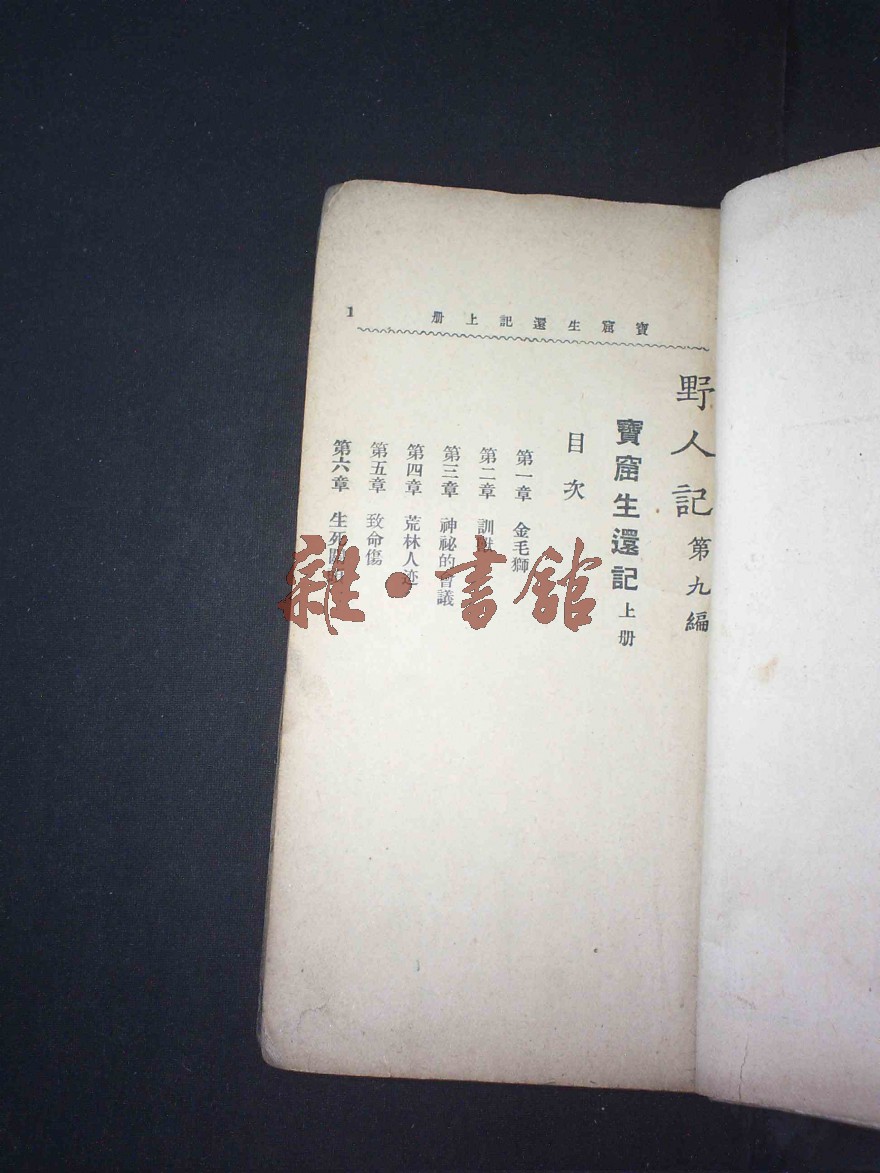 寶窟生還記上册
1
野人記 第九編
寶窟生還記 上册
目次
第一章 金毛獅
第二章 訓
第三章 神祕的會議
第四章 荒林人迹
第五章 致命傷
第六章 生死
雜·書館